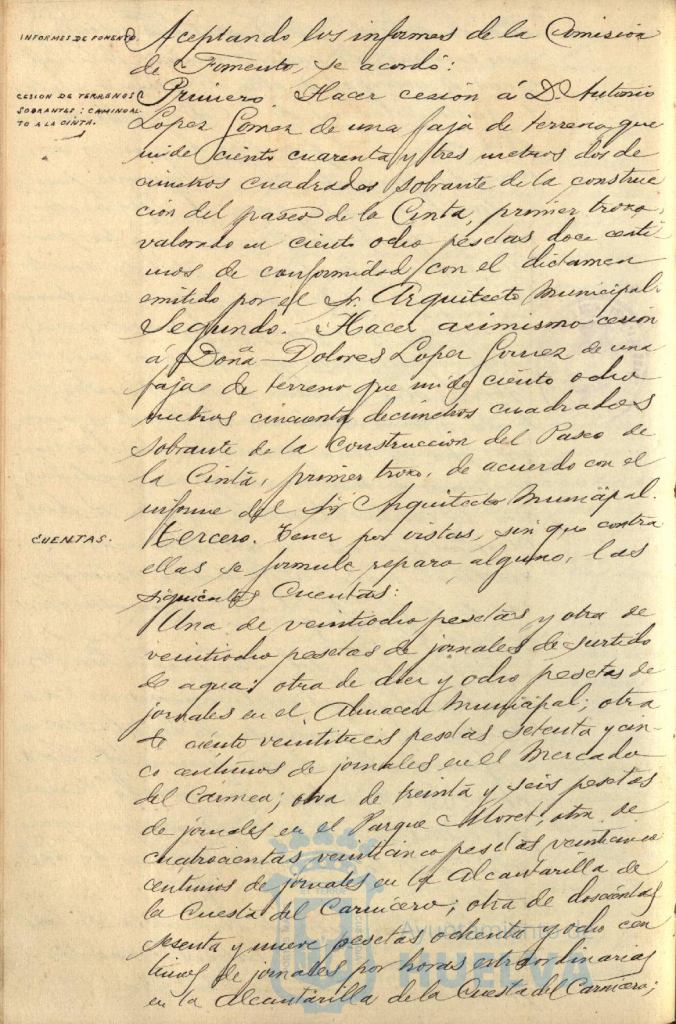 INFORMES DE FOMENTO.
Aceptando los informes de la Comisión
de Fomento, se acordó:
CESION DE TERRENOS
SOBRANTES: CAMINO AL-
TO A LA CINTA.
Primero. Hacer cesión á D. Antonio
Lopez Gomez de una faja de terreno que
mide ciento cuarenta y tres metros dos de
cimetros cuadrados sobrante de la construc
ción del paseo de la Cinta, primer trozo,
valorado en ciento ocho pesetas doce centi
mos de conformidad con el dictamen
emitido por el Sr. Arquitecto Municipal.
Segundo. Hacer asimismo cesión
á Doña Dolores Lopez Gomez de una
faja de terreno que mide ciento ocho
metros cincuenta decimetros cuadrados
sobrante de la Construccion del Paseo de
la Cinta, primer trozo, de acuerdo con el
informe del Sr. Arquitecto Municipal.
CUENTAS.
Tercero. Tener por vistas, sin que contra
ellas se formule reparo alguno, las
siguientes Cuentas:
Una de veintiocho pesetas y otra de
veintiocho pesetas de jornales de surtido
de agua; otra de diez y ocho pesetas de
jornales en el Almacen Municipal; otra
de ciento veintitres pesetas setenta y cin-
co centimos de jornales en el Mercado
del Carmen; otra de treinta y seis pesetas
de jornales en el Parque Moret; otra de
cuatrocientas veinticinco pesetas veinticinco
centimos de jornales en la Alcantarilla de
la Cuesta del Carnicero; otra de doscientas
sesenta y nueve pesetas ochenta y ocho cen
timos de jornales por horas extraordinarias
en la Alcantarilla de la Cuesta del Carnicero;
Ayuntamiento de
HUELVA